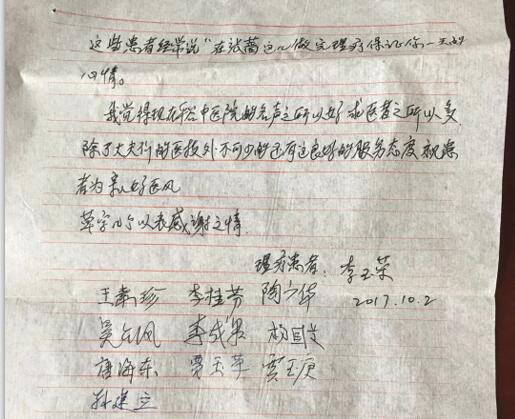 这些患者经常说“在张茜这儿做完理疗保证你一天的
心情。
我觉得现在和中医院的名声之所以好 求医者之所以多
除了大夫们的医技外不可少的还有这良好的服务态度 视患
者为亲人好医风
草字几个以表感谢之情
理疗患者：李玉荣
王素珍 李桂芳 陶六华 2017.10.2
吴立凤 李成果 杨国芝
唐海东 贾玉苹 贾玉庚
孙建立